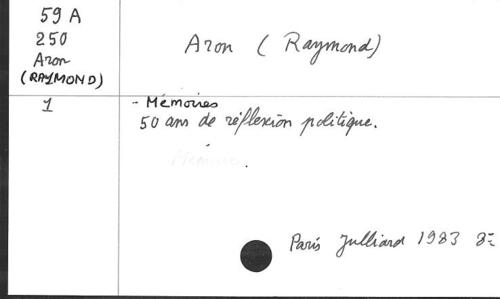 59 A
250
Aron
(RAYMOND)
Aron (Raymond)
1
- Mémoires
50 ans de réflexion politique.
Paris Julliard 1983 8=